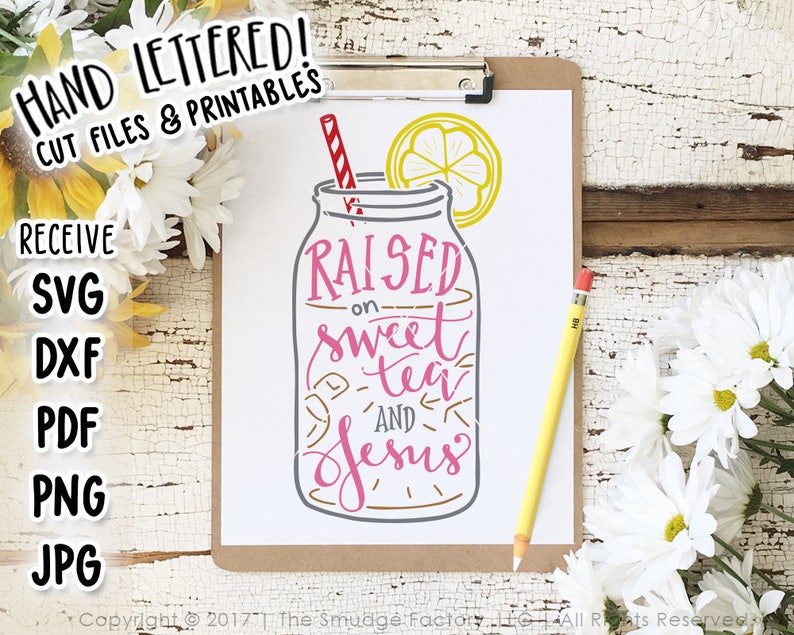 HAND LETTERED!
CUT FILES & PRINTABLES
RECEIVE
SVG
DXF
PDF
PNG
JPG
RAISED
on
sweet
tea
AND
Jesus
HB
Copyright © 2017 | The Smudge Factory, LLC | All Rights Reserved